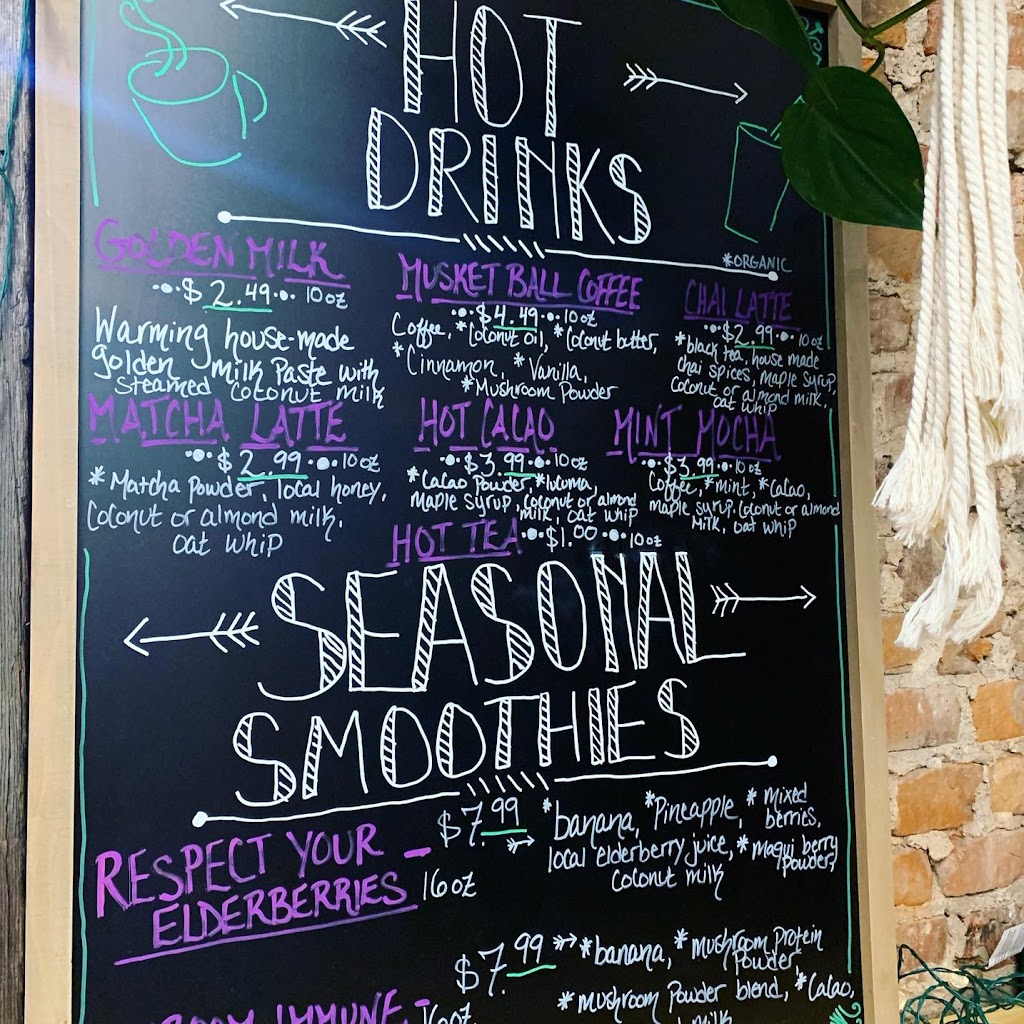 HOT
DRINKS
*ORGANIC
GOLDEN MILK
$2.49 10oz
Warming house-made
golden milk Paste with
steamed coconut milk
MUSKET BALL COFFEE
$4.49 10oz
Coffee, *Coconut oil, *Coconut butter,
*Cinnamon, *Vanilla,
*Mushroom Powder
CHAI LATTE
$2.99 10oz
*black tea, house made
chai spices, maple syrup,
coconut or almond milk,
oat whip
MATCHA LATTE
$2.99 10oz
*Matcha powder, local honey,
Coconut or almond milk,
oat whip
HOT CACAO
$3.99 10oz
*Cacao Powder, *lucuma,
maple syrup, coconut or almond
milk, oat whip
MINT MOCHA
$3.99 10oz
Coffee, *mint, *Cacao,
maple syrup, coconut or almond
milk, oat whip
HOT TEA $1.00 10oz
SEASONAL
SMOOTHIES
RESPECT YOUR -
ELDERBERRIES 16oz
$7.99 *banana, *Pineapple, *mixed
berries,
local elderberry juice, *maqui berry
powder,
coconut milk
$7.99 *banana, *mushroom protein
powder,
*mushroom Powder blend, *Cacao,
IMMUNE - 16oz
milk